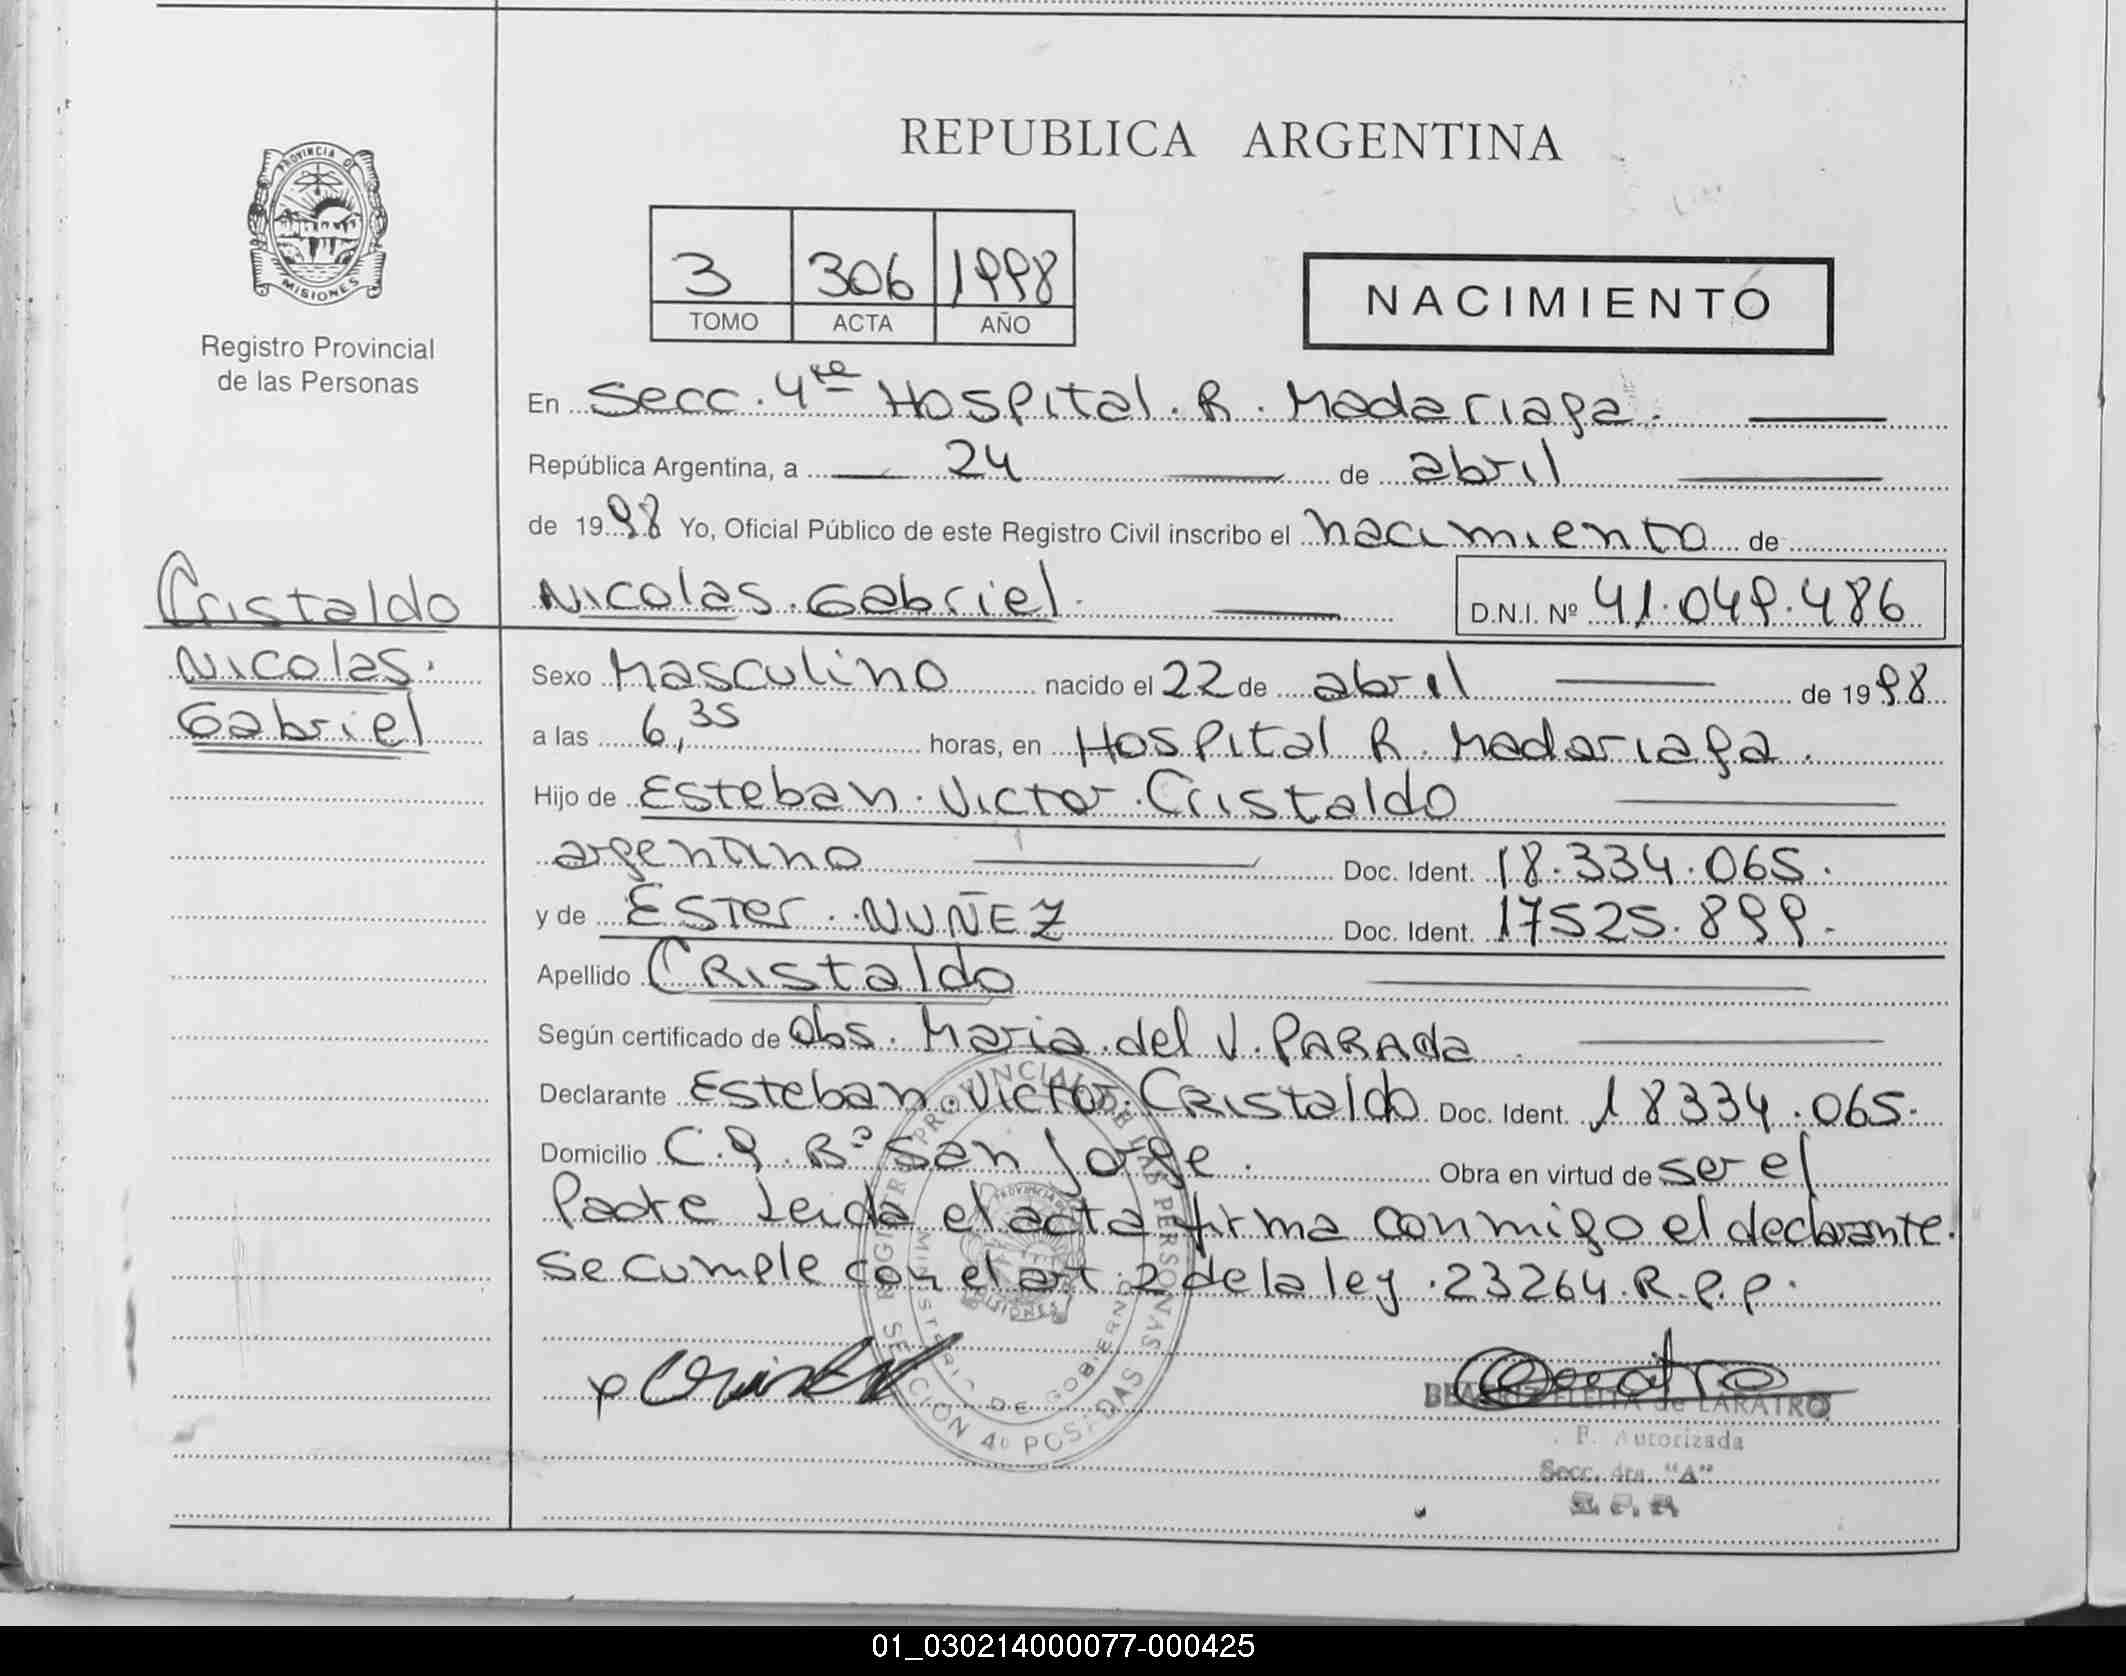 REPUBLICA ARGENTINA
PROVINCIA DE
MISIONES
Registro Provincial
de las Personas
3 306 1998
TOMO ACTA AÑO
NACIMIENTO
En Secc. 4ta Hospital. R. Madariaga.
República Argentina, a 24 de abril
de 1998 Yo, Oficial Público de este Registro Civil inscribo el nacimiento de
Cristaldo
Nicolas.
Gabriel
Nicolas. Gabriel. D.N.I. Nº 41.049.486
Sexo Masculino nacido el 22 de abril de 1998
a las 6,35 horas, en Hospital R. Madariaga.
Hijo de Esteban. Victor. Cristaldo
argentino Doc. Ident. 18.334.065.
y de Ester. NUÑEZ Doc. Ident. 17525.899.
Apellido CRistaldo
Según certificado de Obs. Maria. del V. PARAda.
Declarante Esteban. Victor. CRistaldo Doc. Ident. 18334.065.
Domicilio C.9. Bº San Jorge. Obra en virtud de ser el
Padre Leida el acta firma conmigo el declarante.
se cumple con el art. 2 de la ley. 23264. R.P.P.
REGISTRO PROVINCIAL DE LAS PERSONAS
MINISTERIO DE GOBIERNO
SECCION 4º POSADAS
BEATRIZ FLEITA de LARATRO
F. Autorizada
Secc. 4ta. "A"
01_030214000077-000425